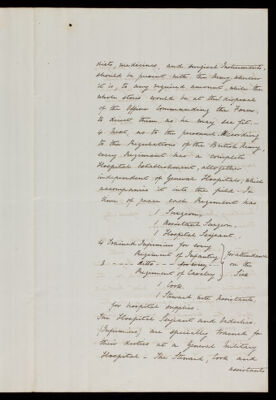 diets, medicines, and surgical Instruments,
should be present with the Army wherever
it is, to any required amount, while the
whole stores would be at the disposal
of the Officer Commanding the Forces,
to direct them as he may see fit.
4 Next, as to the personnel. According
to the Regulations of the British Army,
every Regiment has a complete
Hospital Establishment, altogether
independent of General Hospitals, which
accompanies it into the field. In
time of peace each Regiment has
1 Surgeon
1 Assistant Surgeon
1 Hospital Sergeant
4 Trained Infirmiers for every
Regiment of Infantry
3 ditto for every
Regiment of Cavalry
for attendance
on the
Sick
1 Cook
1 Steward with Assistants,
for hospital supplies.
The Hospital Sergeant and Orderlies
(Infirmiers) are specially trained for
their duties at a General Military
Hospital - The Steward, Cook and
assistants